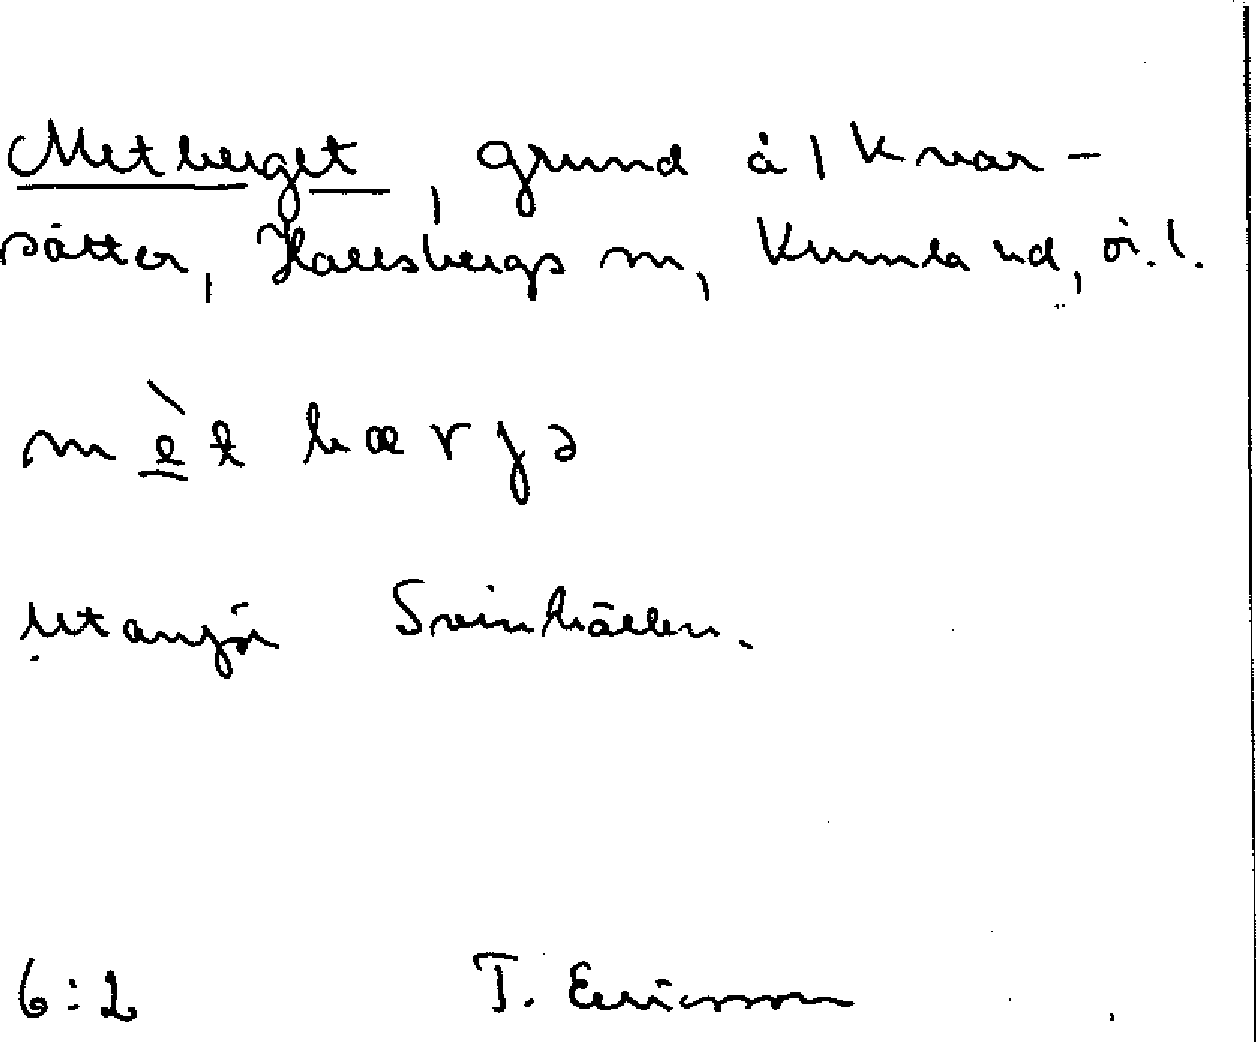 Metberget, grund å / Kvar-
sätter, Hallsbergs sn, Kumla hd, ör. l.
mèt bærjə
utanför Svinhällen.
6:2 T. Ericsson